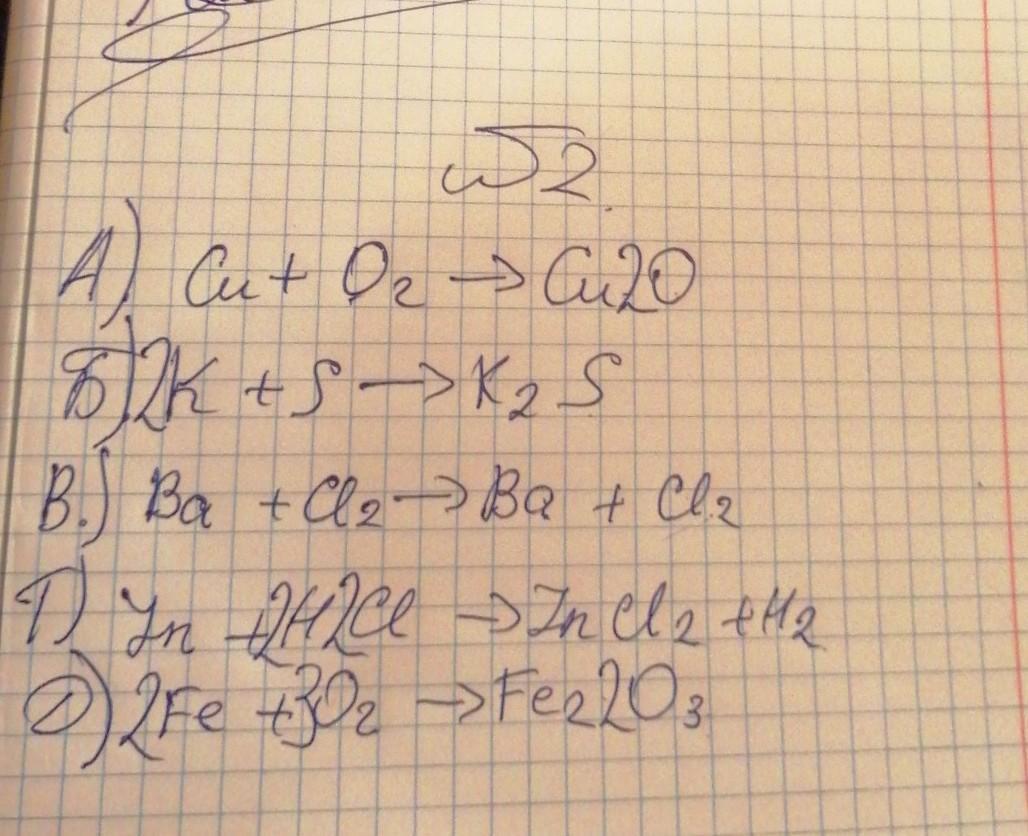 №2.
А) Cu + O₂ → Cu2O
Б) 2K + S → K₂ S
В.) Ba + Cl₂ → Ba + Cl₂
Г) Zn + 2H2Cl → Zn Cl₂ + H₂
Д) 2Fe + 3O₂ → Fe₂2O₃